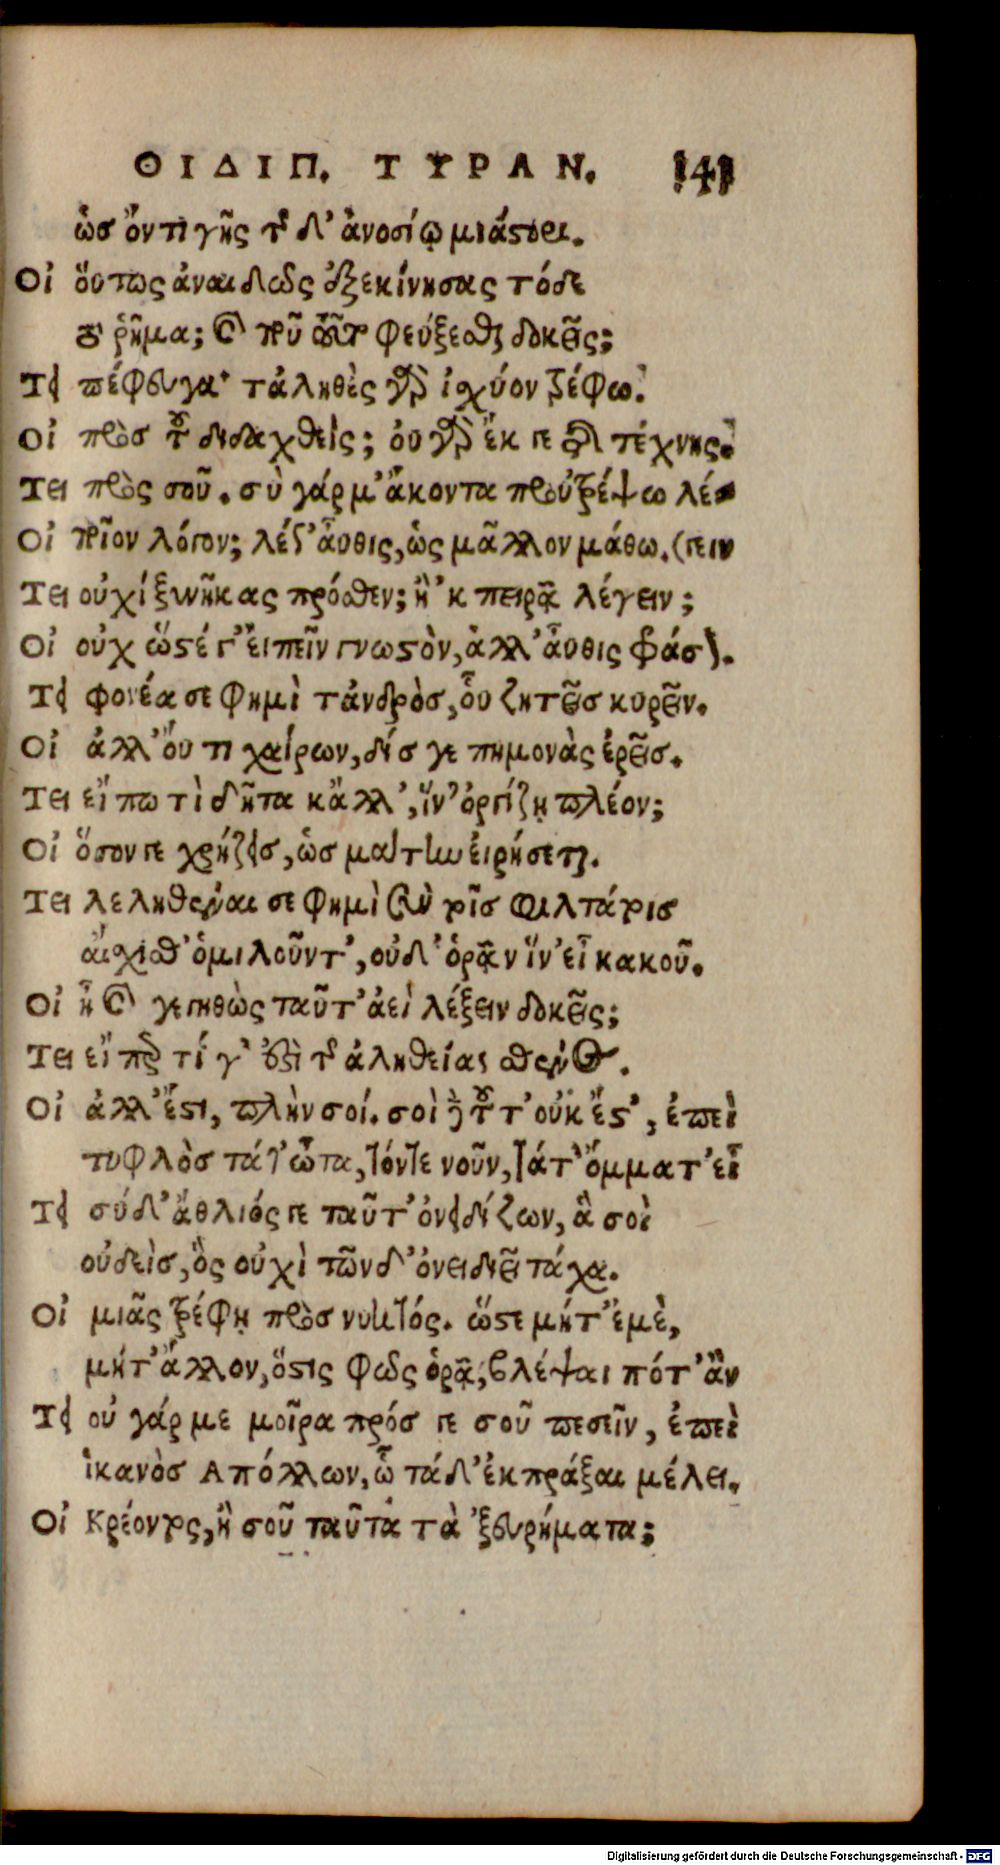 ΟΙΔΙΠ. ΤΥΡΑΝ. 141
ὡσ ὄντι γῆς τῆσδ' ἀνοσίῳ μιάστορι.
Οἰ οὕτως ἀναιδῶς ἐξεκίνησας τόδε
τὸ ῥῆμα; καὶ ποῦ τοῦτο φεύξεσθαι δοκεῖς;
Τει πέφευγα· τἀληθὲς γὰρ ἰχύον τρέφω.
Οἰ πρὸσ τοῦ διδαχθείς; ὀυ γὰρ ἔκ γε τῆς τέχνης.
Τει πρὸς σοῦ. σὺ γάρ μ' ἄκοντα προὐτρέψω λέ-
Οἰ ποῖον λόγον; λέγ' ἆυθις, ὡς μᾶλλον μάθω. (γειν
Τει οὐχὶ ξυνῆκας πρόσθεν; ἢ 'κ πειρᾷ λέγειν;
Οἰ οὐχ ὥστέ γ' ἐιπεῖν γνωστὸν, ἀλλ' ἆυθις φράσον.
Τει φονέα σε φημὶ τἀνδρὸσ, ὗ ζητεῖσ κυρεῖν.
Οἰ ἀλλ' ὄυ τι χαίρων, δίσ γε πημονὰς ἐρεῖσ.
Τει εἴπω τὶ δῆτα κἄλλ', ἵν' ὀργίζῃ πλέον;
Οἰ ὅσον γε χρήζεισ, ὡσ μάτην ἐιρήσεται.
Τει λεληθέναι σε φημὶ σὺν τοῖσ φιλτάτοισ
αἴχισθ' ὁμιλοῦντ', οὐδ' ὁρᾷν ἵν' εἶ κακοῦ.
Οἰ ἦ καὶ γεγηθὼς ταῦτ' ἀεὶ λέξειν δοκεῖς;
Τει εἴπερ τί γ' ἐστὶ τῆς ἀληθείας σθένος.
Οἰ ἀλλ' ἔστι, πλὴν σοί. σοὶ δὲ τοῦτ' οὐκ ἔστ', ἐπεὶ
τυφλὸσ τά τ' ὦτα, τόν τε νοῦν, τά τ' ὄμματ' εἶ
Τει σύ δ' ἄθλιός γε ταῦτ' ὀνειδίζων, ἃ σοὶ
οὐδεὶσ, ὃς οὐχὶ τῶνδ' ὀνειδιεῖ τάχα.
Οἰ μιᾶς τρέφῃ πρὸσ νυκτός. ὥστε μήτ' ἐμὲ,
μήτ' ἄλλον, ὅστις φῶς ὁρᾷ, βλέψαι πότ' ἂν
Τει οὐ γάρ με μοῖρα πρόσ γε σοῦ πεσεῖν, ἐπεὶ
ἱκανὸσ Απόλλων, ᾧ τάδ' ἐκπράξαι μέλει.
Οἰ Κρέοντος, ἢ σοῦ ταῦτα τὰ 'ξευρήματα;
Digitalisierung gefördert durch die Deutsche Forschungsgemeinschaft - DFG